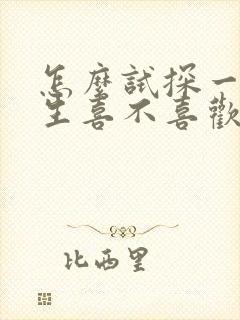 怎麼試探一
生喜不喜歡
比西里